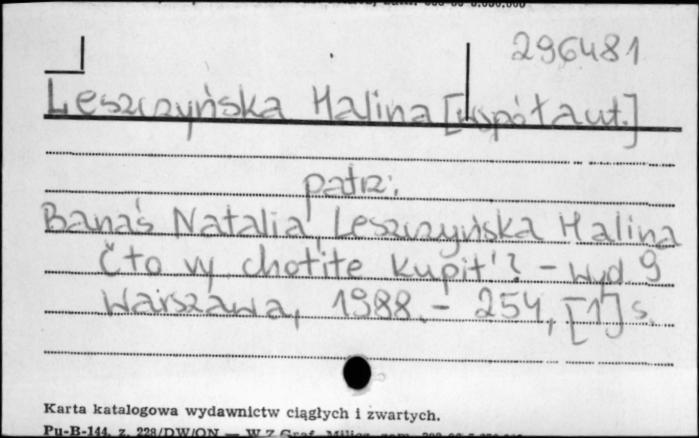 296481
Leszczyńska Halina [współaut.]
patrz:
Banaś Natalia, Leszczyńska Halina
Čto vy chotite kupit'? - wyd. 9
Warszawa, 1988. - 254, [1] s.
Karta katalogowa wydawnictw ciągłych i zwartych.
Pu-B-144, z. 228/DW/ON — W Z Graf.